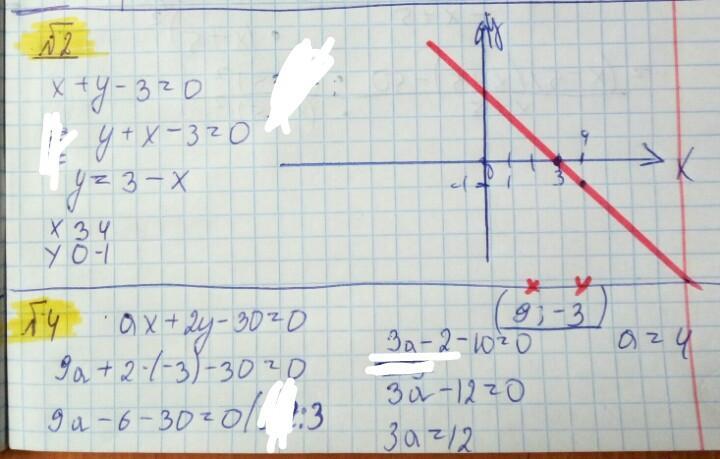 №2
x + y - 3 = 0
y + x - 3 = 0
=
y = 3 - x
x 3 4
y 0 -1
y
0 1 3 4 x
-1
№4
ax + 2y - 30 = 0
9a + 2·(-3) - 30 = 0
9a - 6 - 30 = 0 | :3
x y
(9; -3)
3a - 2 - 10 = 0
3a - 12 = 0
3a = 12
a = 4